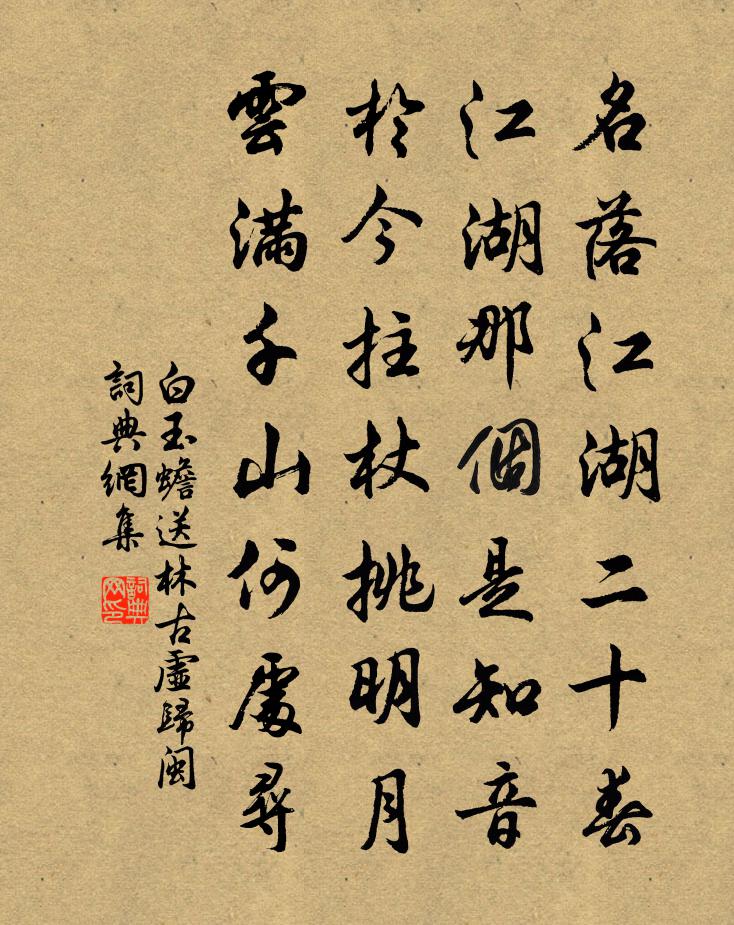 名落江湖二十春
江湖那個是知音
於今拄杖挑明月
雲滿千山何處尋
白玉蟾送林古虛歸閩
詞典網集
詞典
网印